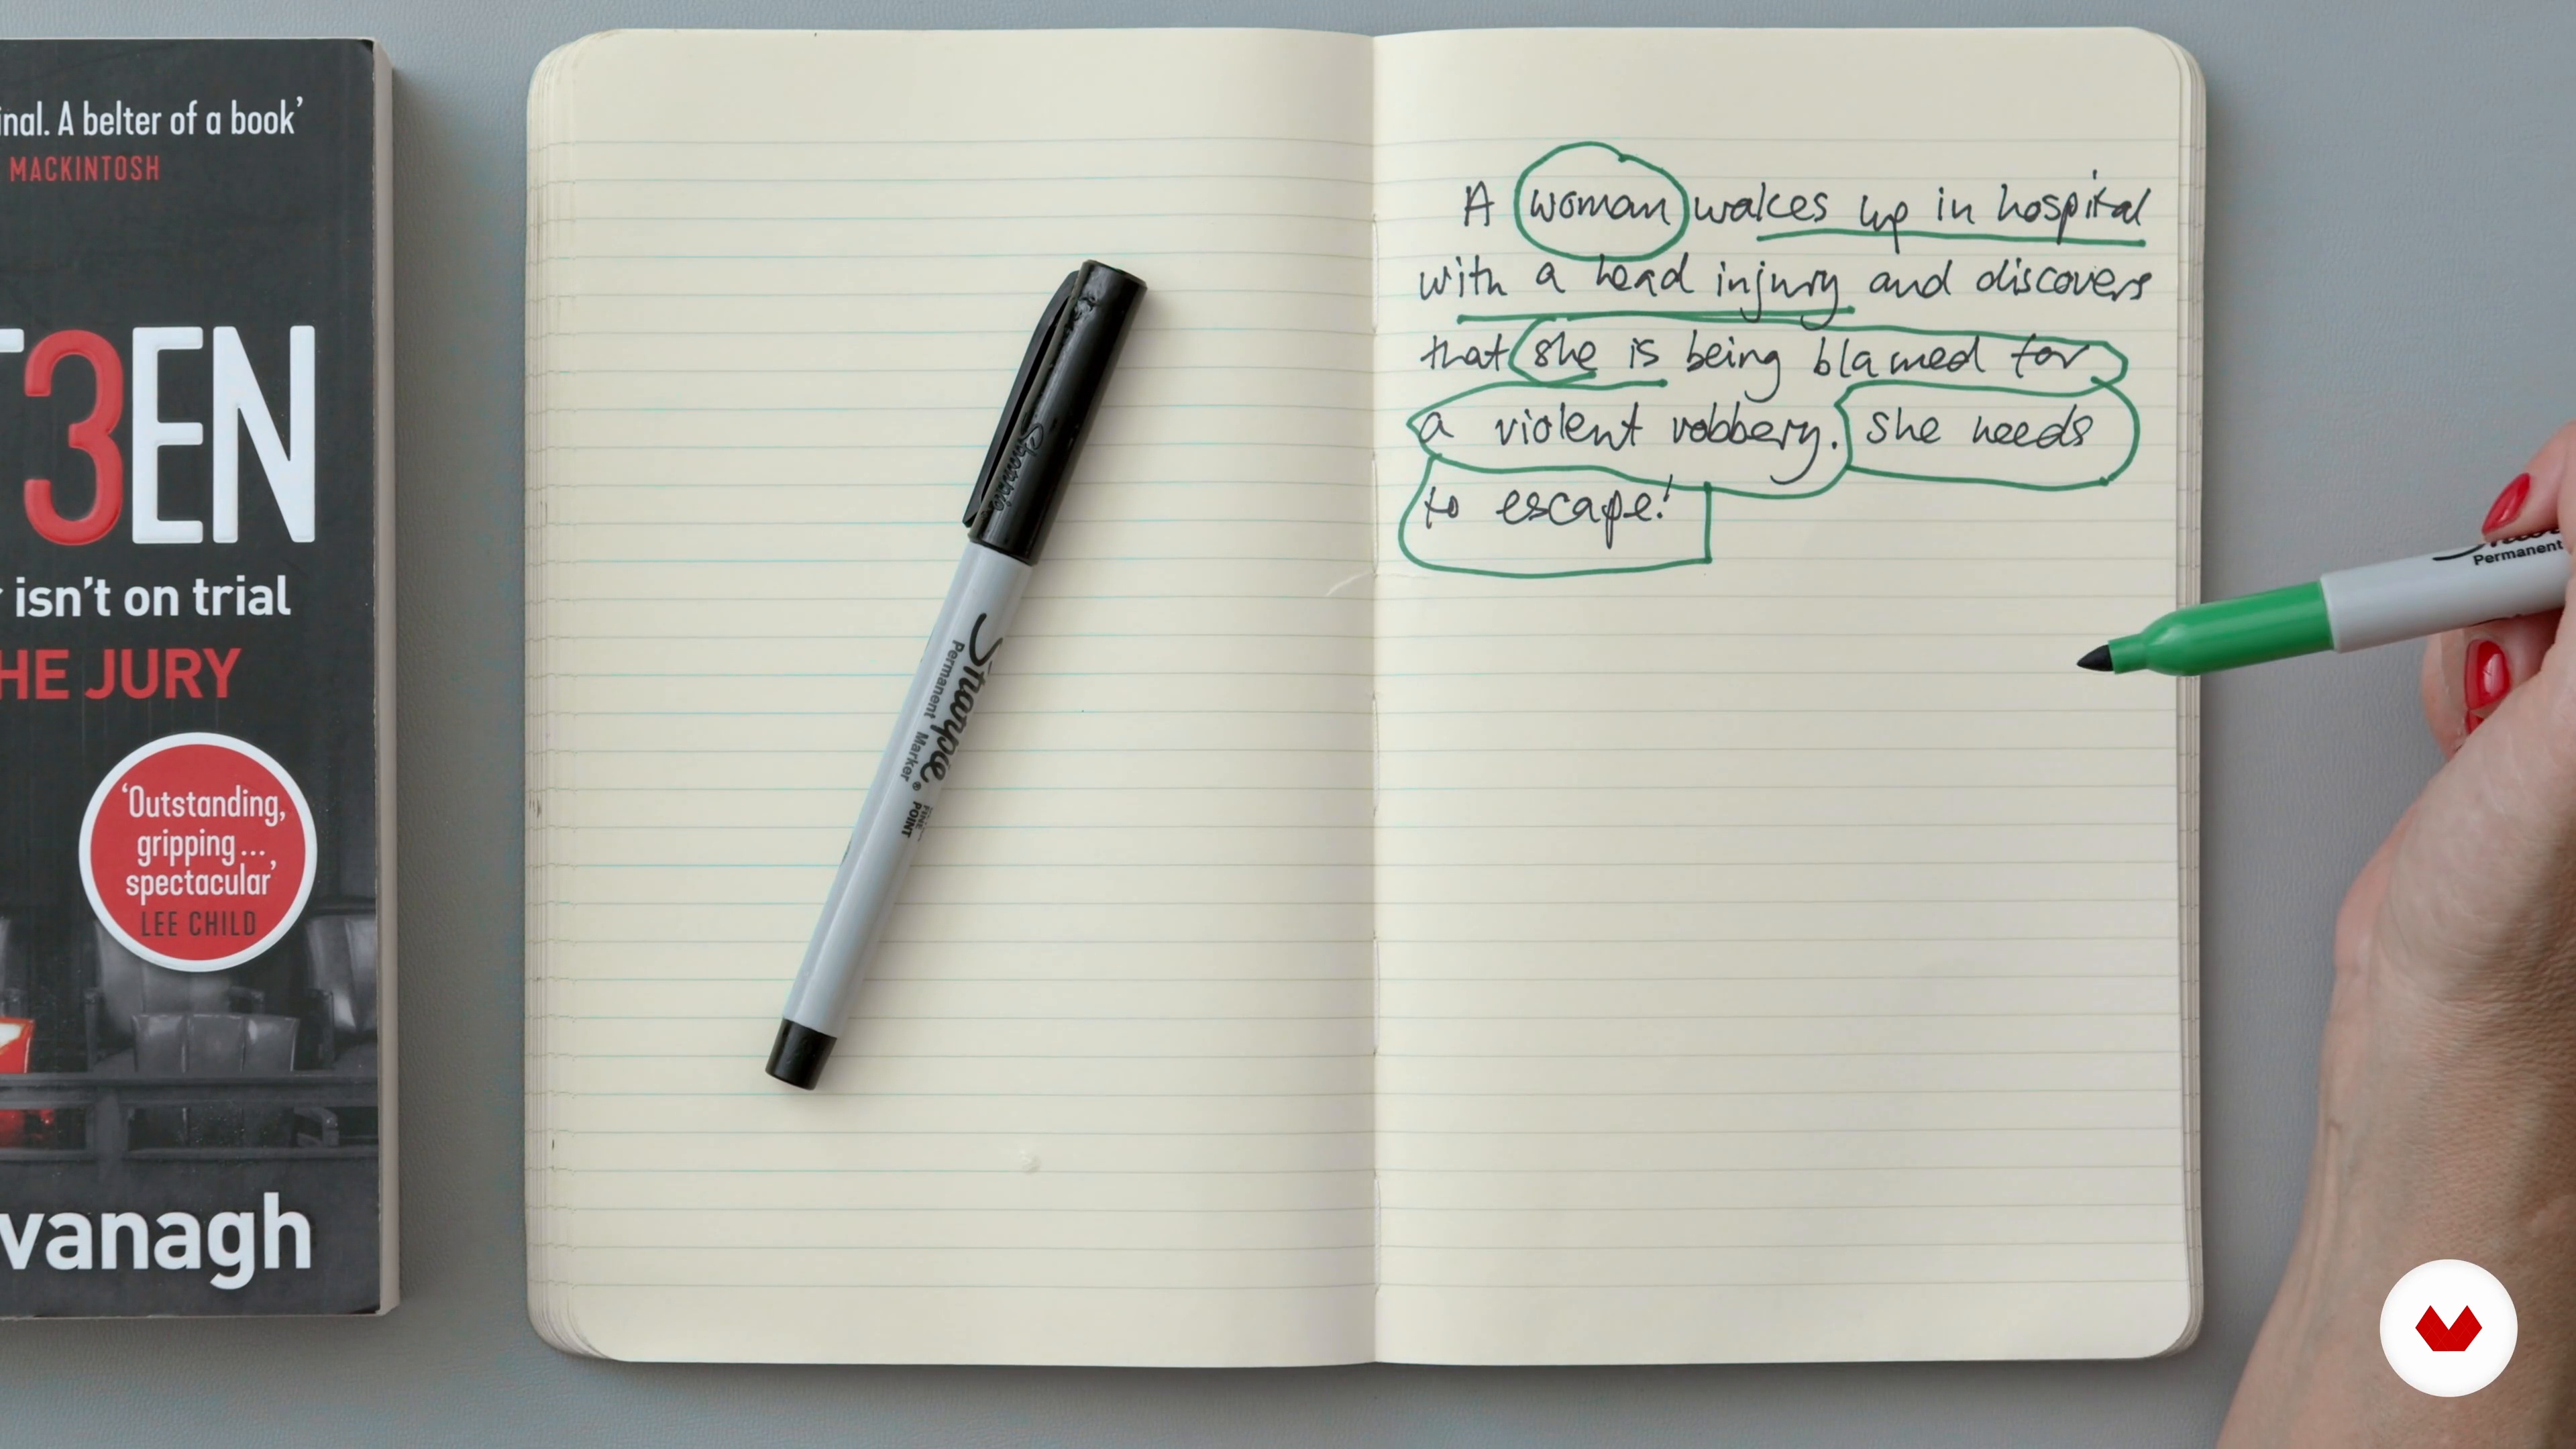 inal. A belter of a book’
MACKINTOSH
T3EN
r isn’t on trial
HE JURY
‘Outstanding,
gripping...
spectacular’
LEE CHILD
vanagh
Sharpie
Sharpie
Permanent Marker®
FINE
POINT
A woman wakes up in hospital
with a head injury and discovers
that she is being blamed for
a violent robbery. She needs
to escape!
Permanent